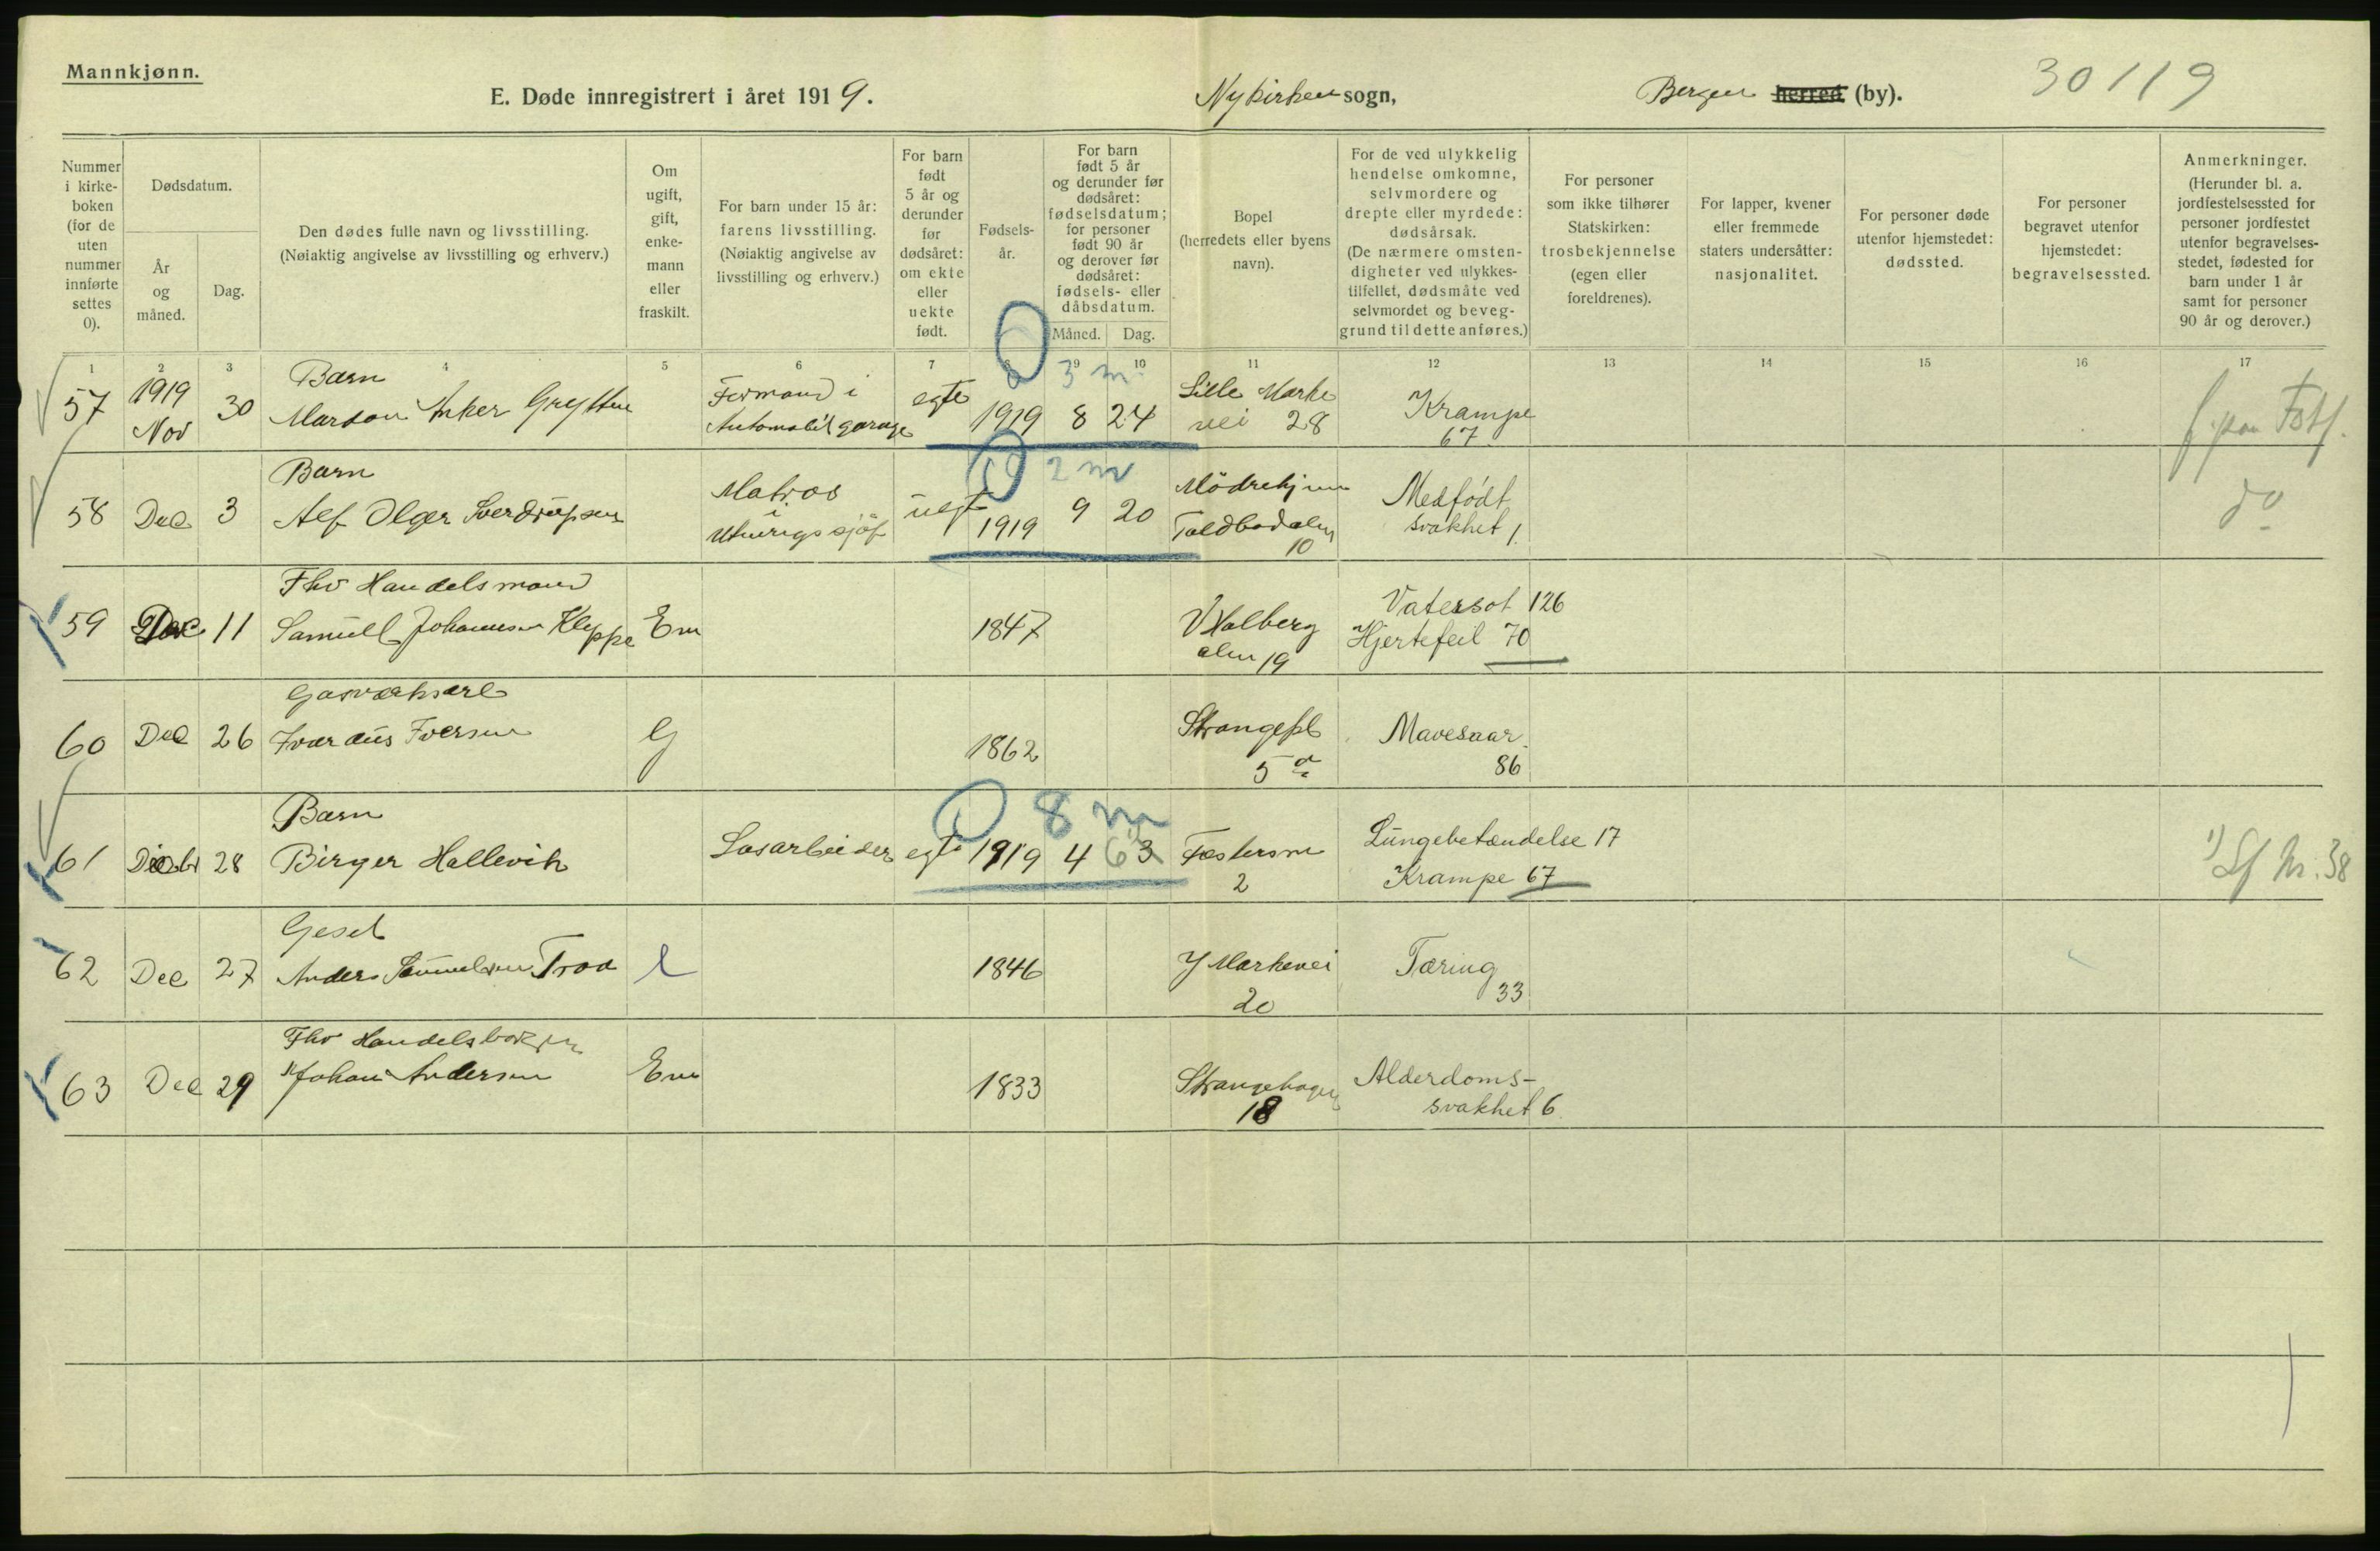 Mannkjønn.
E. Døde innregistrert i året 1919.
Nykirken sogn,
Bergen herred (by).
30119
Nummer i kirke-boken (for de uten nummer innførte settes 0).
Dødsdatum.
År og måned.
Dag.
Den dødes fulle navn og livsstilling.
(Nøiaktig angivelse av livsstilling og erhverv.)
Om ugift, gift, enke-mann eller fraskilt.
For barn under 15 år: farens livsstilling.
(Nøiaktig angivelse av livsstilling og erhverv.)
For barn født 5 år og derunder før dødsåret: om ekte eller uekte født.
Fødsels-år.
For barn født 5 år og derunder før dødsåret: fødselsdatum; for personer født 90 år og derover før dødsåret: fødsels- eller dåbsdatum.
Måned.
Dag.
Bopel (herredets eller byens navn).
For de ved ulykkelig hendelse omkomne, selvmordere og drepte eller myrdede: dødsårsak.
(De nærmere omsten-digheter ved ulykkes-tilfellet, dødsmåte ved selvmordet og beveg-grund til dette anføres.)
For personer som ikke tilhører Statskirken: trosbekjennelse (egen eller foreldrenes).
For lapper, kvener eller fremmede staters undersåtter: nasjonalitet.
For personer døde utenfor hjemstedet: dødssted.
For personer begravet utenfor hjemstedet: begravelsessted.
Anmerkninger.
(Herunder bl. a. jordfestelsessted for personer jordfestet utenfor begravelses-stedet, fødested for barn under 1 år samt for personer 90 år og derover.)
1 2 3 4 5 6 7 8 9 10 11 12 13 14 15 16 17
0 3 m
57 1919 Nov 30 Barn
Anker Grytten
Formand i Automobilgarage egte 1919 8 24 Lille Marke vei 28 Krampe 67
2 m
58 Dec 3 Barn
Alf Olger Sverdrupsen
Matros i Utenrigssjøf uegt 1919 9 20 Mödrehjem Toldbodalm 10 Medfødt svakhet 1.
do
59 Dec 11 Fhv Handelsmand
Samuel Johannesen Kleppe Em 1847 V Holberg alm 19 Vatersot 126
Hjertefeil 70
60 Dec 26 Gasværksarb
Iverdius Iversen G 1862 Strangepl 5 a Mavesaar. 86
8 m
61 Decbr 28 Barn
Birger Hallevik Løsarbeider egte 1919 4 3 2 Lungebetændelse 17
Krampe 67
1)
Nr. 38
62 Dec 27 Gesel
Anders Samuelsen Troa 1846 Y Markevei 20 Tæring 33
63 Dec 29 Fhv
Johan Andersen Em 1833 Strangehagen 18 Alderdoms-
svakhet 6.